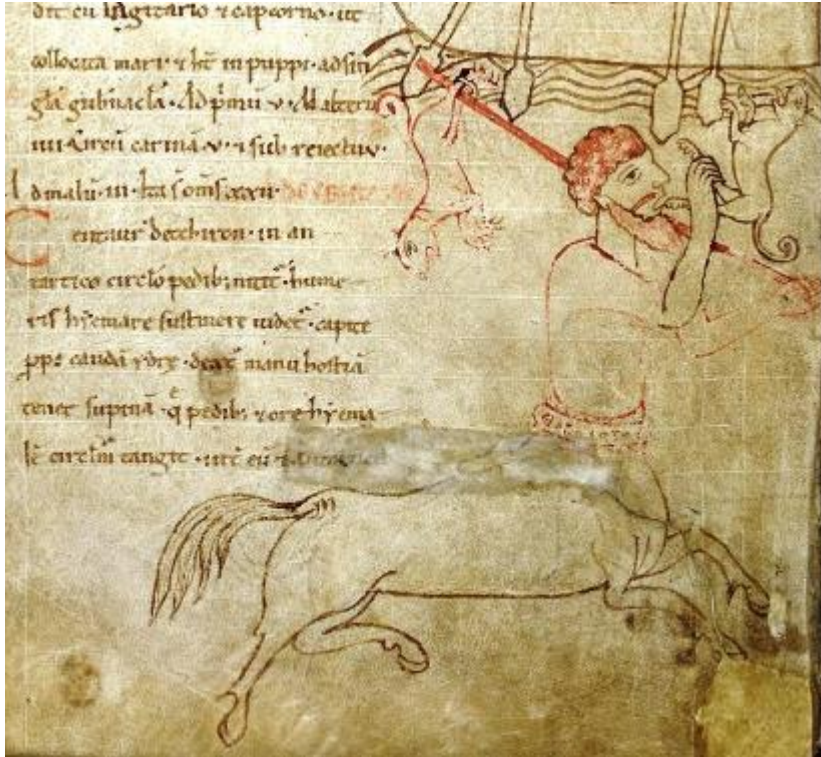 dit cu sagitario & capcorno · ut
collocata mari & ht in puppi · ad sin
gla gubnacla · Ad pmu · v · Ad alteru
iiii · circu carina · v · & sub reiectu · v ·
Ad malu · iii · Ita s oms xxvi
Centaur de chiron · in an
tartico circlo pedib; nitit · hume
ris hyemare sustinere uidet · capite
ppe cauda ydre · dext manu hostia
tenet supina · q pedib; & ore hyema
le circlm tangit · int eu &